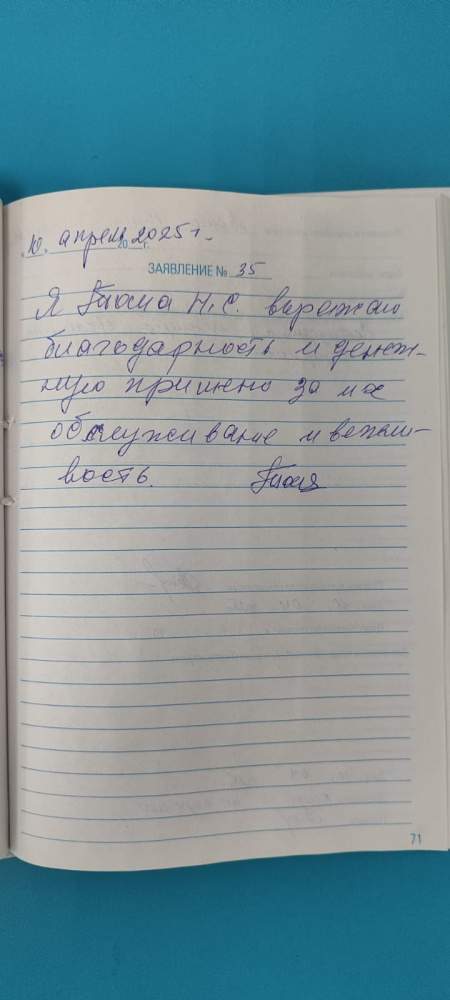 10. апрель 2025 г.
ЗАЯВЛЕНИЕ № 35
Я Н.С. выражаю
благодарность и денеж-
ную за их
обслуживание и вежли-
вость.
71